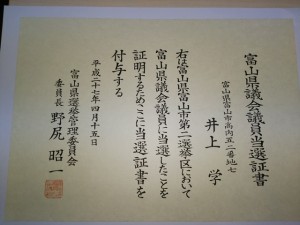 富山県議会議員当選証書
富山県富山市高内五二番地七
井上 学
右は富山県富山市第二選挙区において
富山県議会議員に当選したことを
証明するため、ここに当選証書を
付与する
平成二十七年四月十五日
富山県選挙管理委員会
委員長 野尻 昭一